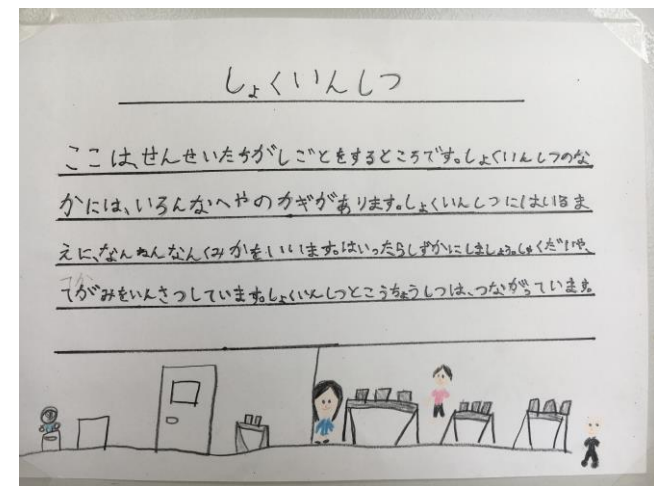 しょくいんしつ
ここは、せんせいたちがしごとをするところです。しょくいんしつのな
かには、いろんなへやのカギがあります。しょくいんしつにはいるま
えに、なんねんなんくみかをいいます。はいったらしずかにしましょう。しゅくだいや、
てがみをいんさつしています。しょくいんしつとこうちょうしつは、つながっています。